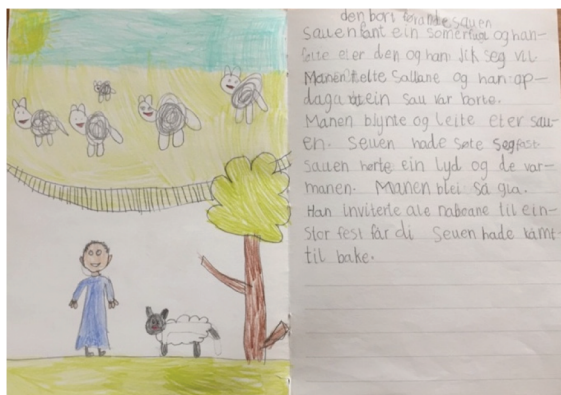 den bort sauen
Sauen fant ein somerfugl og han-
leite eter den og han Jik seg vil
Manen telte Sallane og han op-
daga at ein sau var borte.
Manen bljnte og leite eter sau-
en. Seuen hade sete segfast-
sauen hørte ein lyd og de var-
manen. Manen blei så gla.
Han inviterte ale naboane til ein-
stor fest får di Seuen hade kåmt-
til bake.